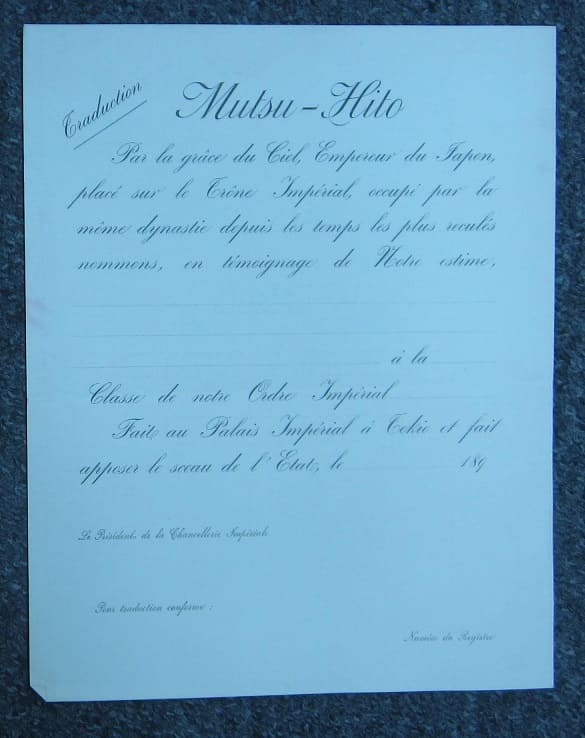 Traduction
Mutsu-Hito
Par la grâce du Ciel, Empereur du Japon,
placé sur le Trône Impérial, occupé par la
même dynastie depuis les temps les plus reculés
nommons, en témoignage de Notre estime,
à la
Classe de notre Ordre Impérial
Fait au Palais Impérial à Tokio et fait
apposer le sceau de l'Etat, le 189
Le Président de la Chancellerie Impériale
Pour traduction conforme :
Numéro du Registre